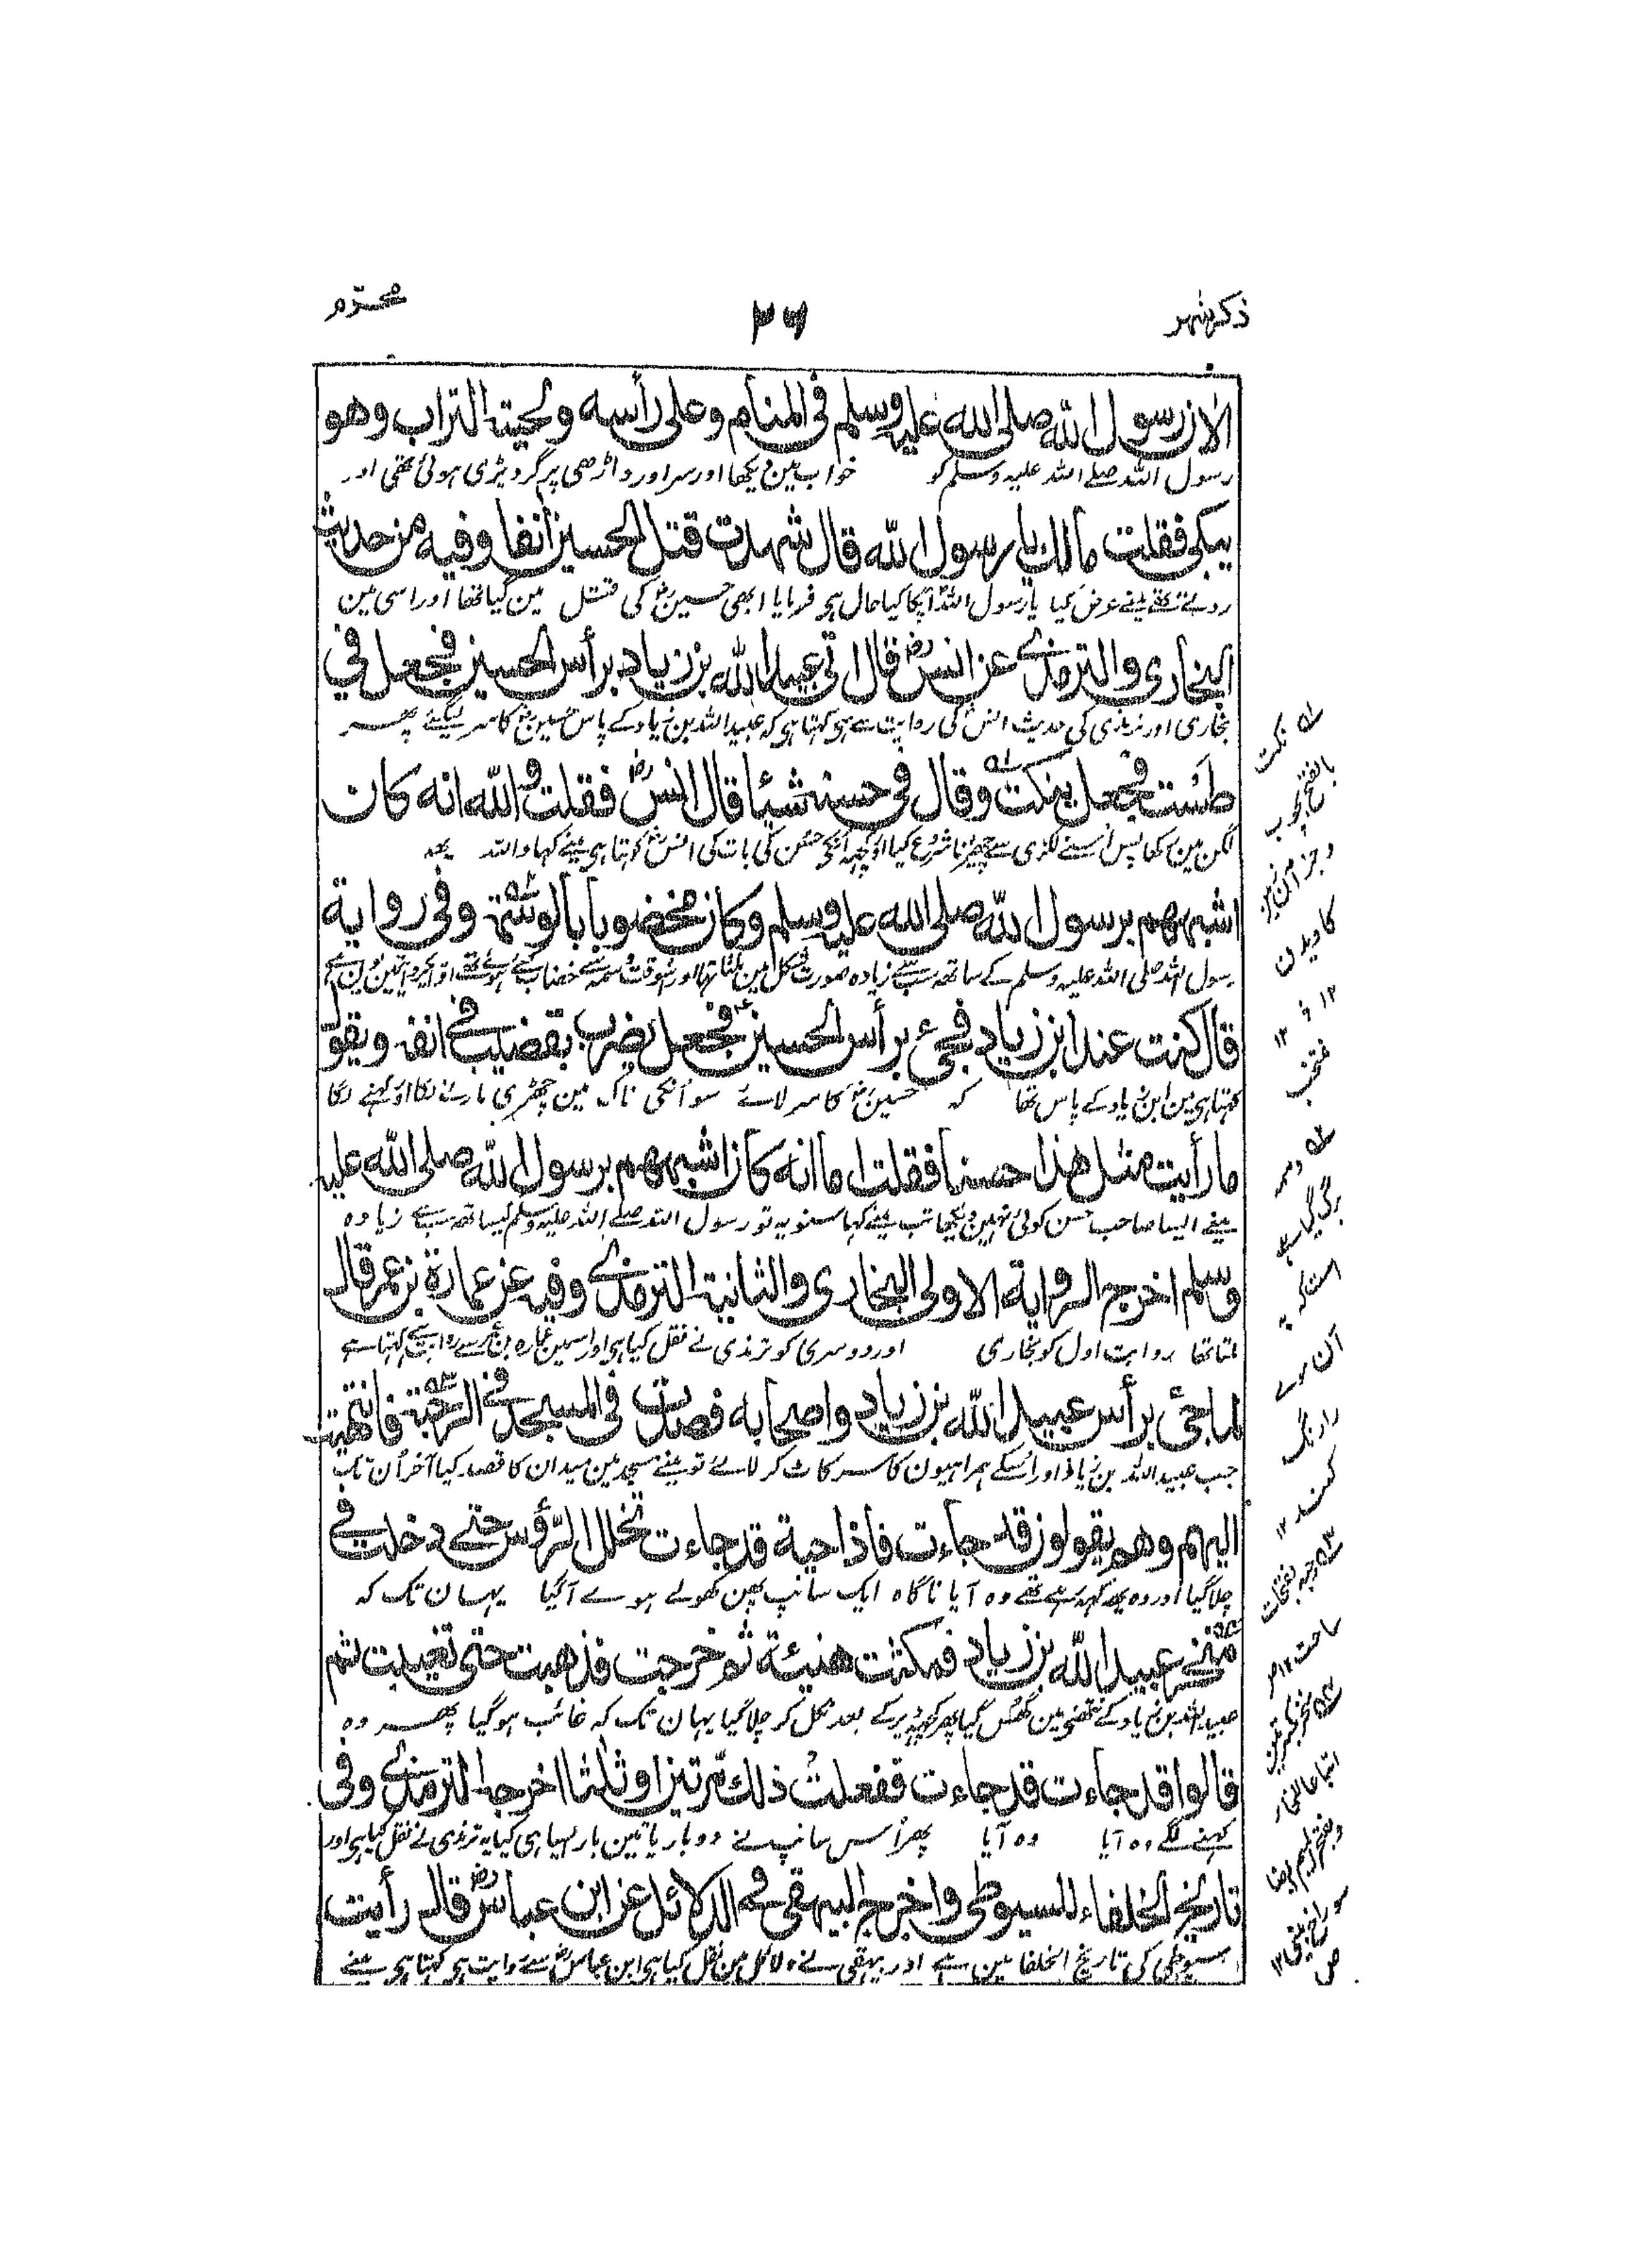 ذکر شہر
۲۶
محرّم
الان رسول الله صلى الله عليه وسلم في المنام وعلى رأسه ولحيته التراب وهو
رسول اللہ صلے اللہ علیہ وسلم کو خواب مین دیکھا اور سر اور داڑھی پر گرد پڑی ہوئی تھی اور
يبكي فقلت مالك يا رسول الله قال شهدت قتل الحسين آنفا وفيه من حديث
روتے تھے مینے عرض کیا یا رسول اللہ آپکا کیا حال ہی فرمایا ابھی حسین رض کی قتل مین گیا تھا اور اسی مین
البخاري والترمذي عن انس رض قال اتى عبيد الله بن زياد برأس الحسين فجعل في
بخاری اور ترمذی کی حدیث انس کی روایت سے ہی کہتا ہی کہ عبید اللہ بن زیاد کے پاس حسین رض کا سر لیگئے پھر
طست فجعل ينكت وقال في حسنه شيئا قال انس رض فقلت والله انه كان
لگن مین رکھا پس اسنے لکڑی سے چھیڑنا شروع کیا اور کچھ انکی حسن کی بات کی انس کہتا ہی مینے کہا واللہ یہ
اشبههم برسول الله صلى الله عليه وسلم وكان مخضوبا بالوسمة وفي رواية
رسول اللہ صلی اللہ علیہ وسلم کے ساتھ سب سے زیادہ صورت شکل مین ملتا تھا اور اسوقت وسمہ سے خضاب کئے ہوئے تھے
قال كنت عند ابن زياد فجيء برأس الحسين رض فجعل يضرب بقضيب في انفه ويقول
کہتا ہی مین ابن زیاد کے پاس تھا کہ حسین رض کا سر لائے سو انکی ناک مین چھڑی مارنے لگا اور کہنے لگا
ما رأيت مثل هذا حسنا فقلت اما انه كان اشبههم برسول الله صلى الله عليه
مینے ایسا صاحب حسن کوئی نہین دیکھا تب مینے کہا سنو یہ تو رسول اللہ صلے اللہ علیہ وسلم کیساتھ سب سے زیادہ
وسلم اخرج الرواية الاولى البخاري والثانية الترمذي وفيه عن عمارة بن عمر قال
ملتا تھا روایت اول کو بخاری اور دوسری کو ترمذی نے نقل کیا ہی اور اسمین عمارہ بن عمر سے روایت ہی کہتا ہے
لما جئ برأس عبيد الله بن زياد واصحابه فصدت في المسجد في الرحبة فانتهيت
جب عبید اللہ بن زیاد اور اسکے ہمراہیون کا سر کاٹ کر لائے تو مینے مسجد مین میدان کا قصد کیا آخر ان تک
اليهم وهم يقولون قد جاءت فاذا حية قد جاءت تخلل الرؤس حتى دخلت في
چلا گیا اور وہ یہ کہہ رہے تھے وہ آیا ناگاہ ایک سانپ پھن کھولے ہوے آگیا یہان تک کہ
منخري عبيد الله بن زياد فمكثت هنيئة ثم خرجت فذهبت حتى تغيبت ثم
عبید اللہ بن زیاد کے نتھنی مین گھس گیا پھر کچھ دیر کے بعد نکل کر چلا گیا یہان تک کہ غائب ہوگیا پھر وہ
قالوا قد جاءت قد جاءت ففعلت ذلك مرتين او ثلثا اخرجه الترمذي وفي
کہنے لگے وہ آیا وہ آیا پھر اس سانپ نے دو بار یا تین بار ایسا ہی کیا یہ ترمذی نے نقل کیا ہی اور
تاريخ الخلفاء للسيوطي واخرج البيهقي في الدلائل عن ابن عباس رض قال رأيت
سیوطی کی تاریخ الخلفا مین ہے اور بیہقی نے دلائل مین نقل کیا ہی ابن عباس رض سے روایت ہی کہتا ہی مینے
نکت
بالفتح بچوب
کاویدن
۱۲
منتخب
وسمہ
برگ گیاہے
است کہ
آن موے
را رنگ
کنند ۱۲
رحبہ بفتحات
ساحت ۱۲
سوراخ بینی ۱۲